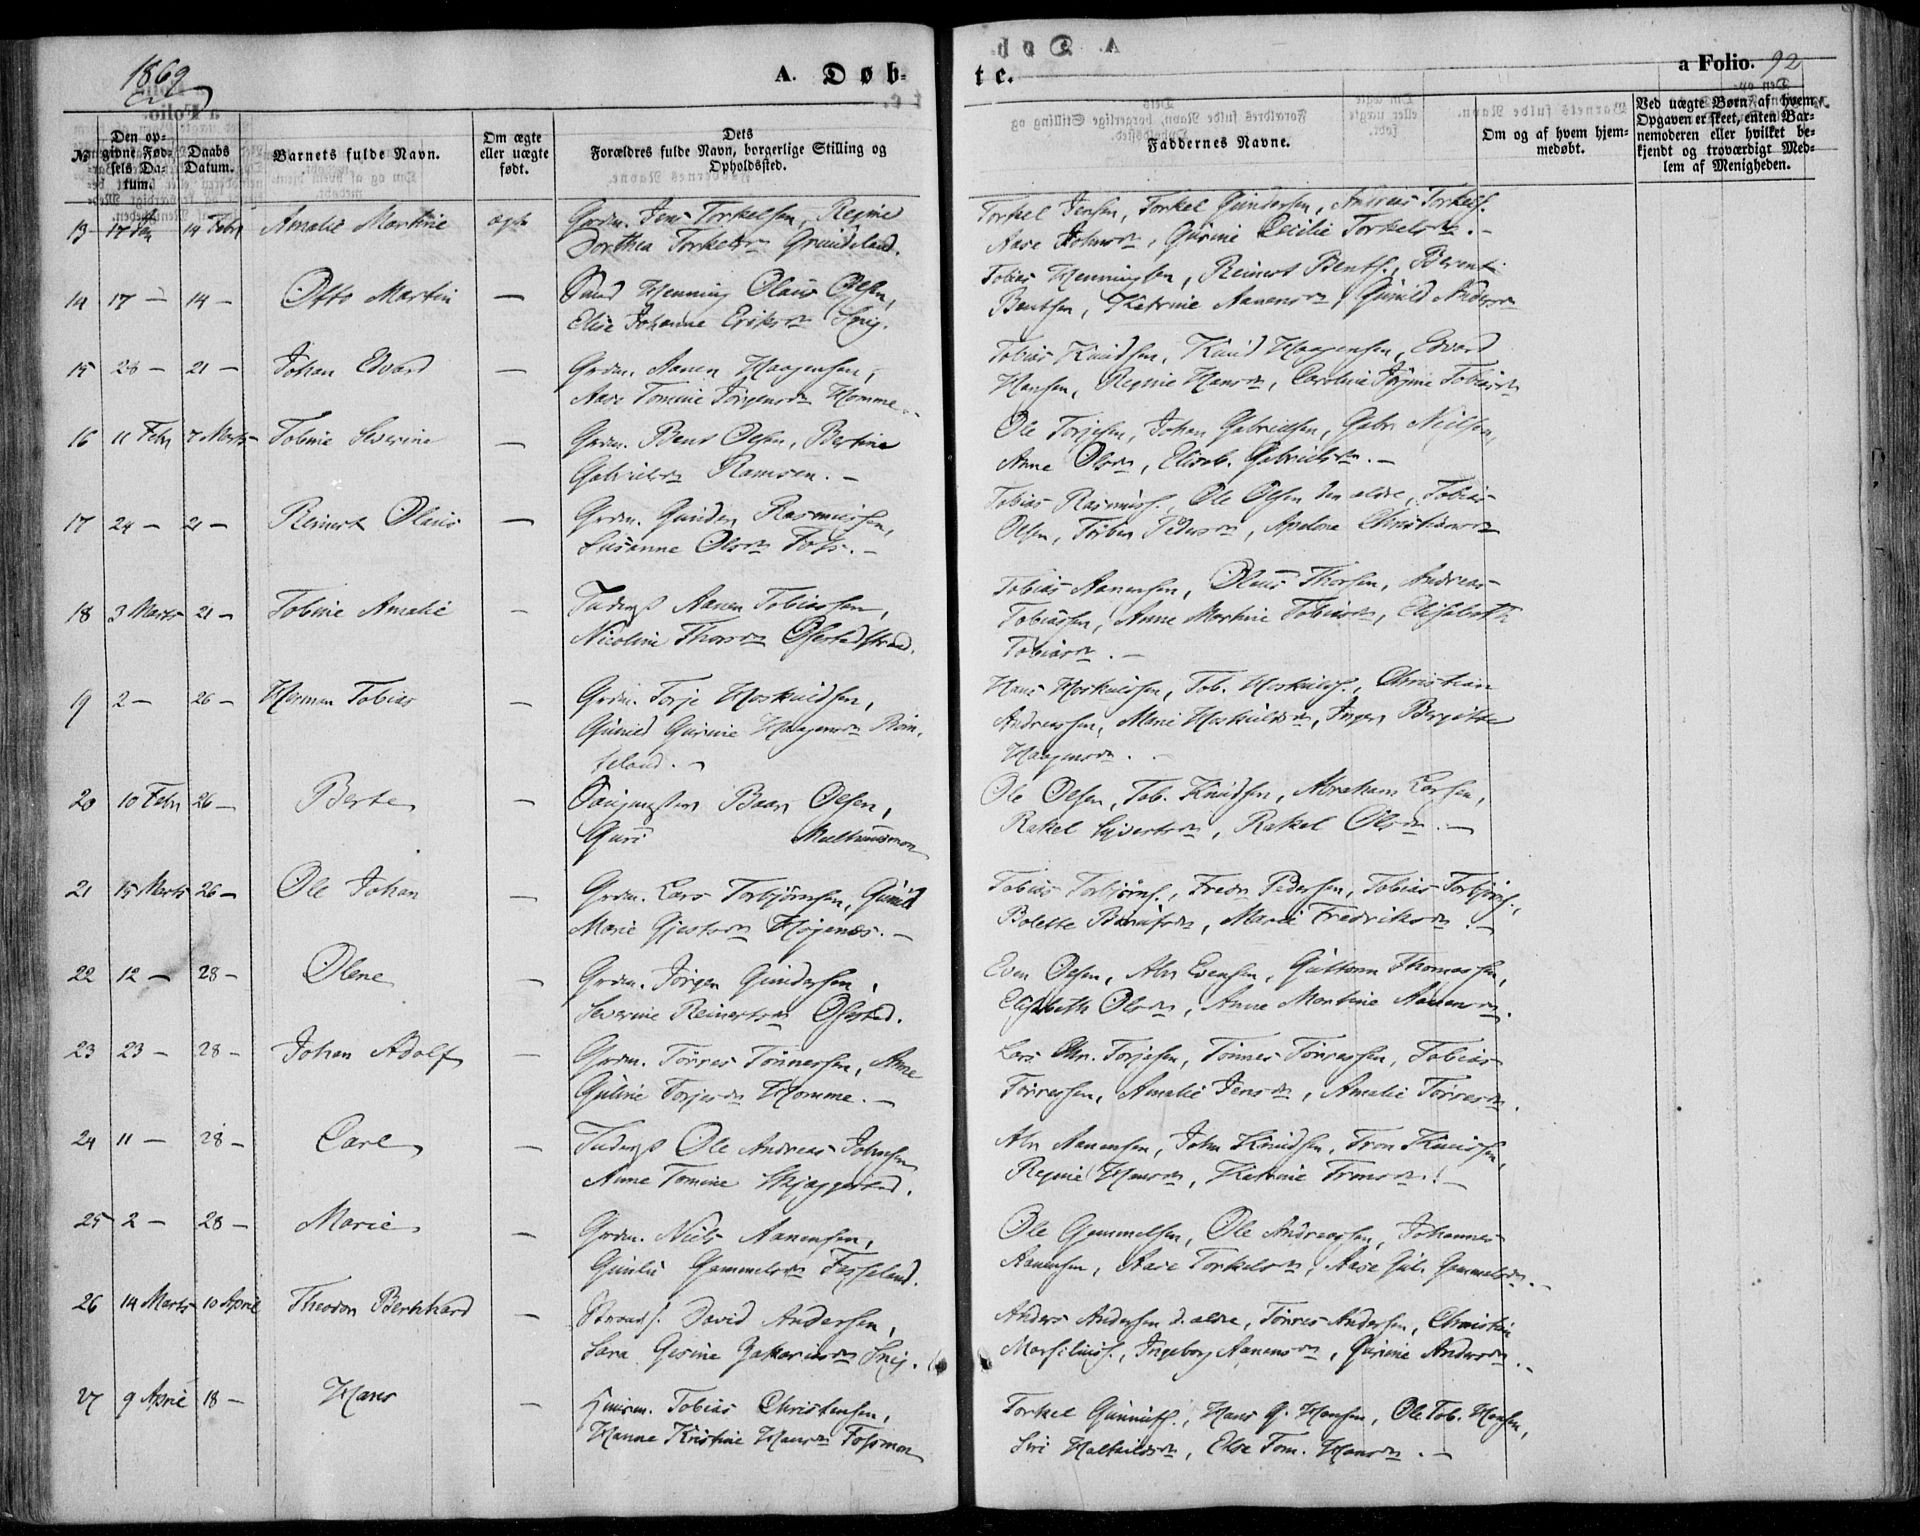 1869
A. Døb-
te.
a Folio. 92
№
Den op-
givne Fød-
sels Da-
tum.
Daabs
Datum.
Barnets fulde Navn.
Om ægte
eller uægte
født.
Dets
Forældres fulde Navn, borgerlige Stilling og
Opholdssted.
Faddernes Navne.
Om og af hvem hjem-
medøbt.
Ved uægte Børn af hvem
Opgaven er skeet, enten Bar-
nemoderen eller hvilket be-
kjendt og troværdigt Med-
lem af Menigheden.
13 17 Jan 14 Febr Amalie Martine ægte Grdm. Jens Torkelsen, Regine
Dorthea Torkelsdn Grundeland.
Torkel Jensen, Torkel Gundersen, Andreas Torkels.
Aase Johnsdn, Gurine Cecilie Torkelsdn. -
14 17 - 14 - Otto Martin — Henning Olaus Olsen,
Elise Johanne Eriksdn Snig.
Tobias Henningsen, Reinert Bents., Berent
Bentsen, Katrine Aanensdn, Gunild Andersdn
15 28 - 21 - Johan Edvard — Grdm. Aanen Haagensen,
Aase Tomine Jörgensdn Homme. -
Tobias Knudsen, Knud Haagensen, Edvard
Hansen, Regine Hansdn, Caroline Jörgine Tobiasdn
16 11 Febr 7 Marts Tobine Severine — Grdm. Bent Olsen, Bertine
Gabrielsdn Ramsøen. -
Ole Torjesen, Johan Gabrielsen, Gabr. Nielsen,
Anne Olsdn, Elisab. Gabrielsdn. -
17 24 - 21 - Reinert Olaus — Grdm. Gunder Rasmussen,
Susanne Olsdn Foss. -
Tobias Rasmuss., Ole Olsen den ældre, Tobias
Olsen, Torbor Pedersdn, Apelone Christiansdn
18 3 Marts 21 - Tobine Amalie — Inderst Aanen Tobiassen,
Nicoline Thorsdn Ofstedstrand.
Tobias Aanensen, Olaus Thorsen, Andreas
Tobiassen, Anne Martine Tobiasdn, Elisabeth
Tobiasdn. -
19 2 - 26 - Herman Tobias — Grdm. Torje Hoskuldsen,
Gunild Gurine Haagensdn Röin-
seland. -
Hans Hoskuldsen, Tob. Hoskulds., Christian
Andreassen, Marie Hoskuldsdn, Inger Birgitte
Haagensdn. -
20 10 Febr 26 - Berte — Baar Olsen,
Guri
Ole Olsen, Tob. Knudsen, Abraham Larsen,
Rakel Sivertsdn, Rakel Olsdn. -
21 15 Marts 26 - Ole Johan — Grdm. Lars Torbjörnsen, Gunild
Marie Gjestsdn Höjenæs. -
Tobias Torbjörns., Fredr. Pedersen, Tobias Torbjörns.,
Bolette Berntsdn, Marie Fredriksdn. -
22 12 - 28 - Olene — Grdm. Jörgen Gundersen,
Severine Reinertsdn Ofsted.
Even Olsen, Abr. Evensen, Guttorm Thomassen,
Elisabeth Olsdn, Anne Martine Aanensdn.
23 23 - 28 - Johan Adolf — Grdm. Törres Tönnessen, Anne
Guline Torjesdn Homme. -
Lars Chr. Torjesen, Tönnes Törressen, Tobias
Törressen, Amalie Jensdn, Amalie Törresdn.
24 11 - 28 - Carl — Inderst Ole Andreas Johnsen
Anne Tomine Skjæggestad.
Abr. Aanensen, John Knudsen, Tron Knudsen,
Regine Hansdn, Katrine Tronsdn. -
25 2 - 28 - Marie — Grdm. Niels Aanensen,
Gunlie Gummelsdn Fasseland.
Ole Gummelsen, Ole Andreassen, Johannes
Aanensen, Aase Torkelsdn, Aase Gul. Gummelsdn. -
26 14 Marts 10 April Theodor Bernhard — Strands. David Andersen,
Sara Gesine Zakariasdn Snig.
Anders Andersen d. ældre, Törres Andersen, Christian
Marselius., Ingeborg Aanensdn, Gurine Andersdn. -
27 9 April 18 - Hans — Huusm. Tobias Christensen,
Hanne Kristine Hansdn Fossmoen
Torkel Gunnufs., Hans G. Hansen, Ole Tob. Hansen,
Siri Halkildsdn, Else Tom. Hansdn. -